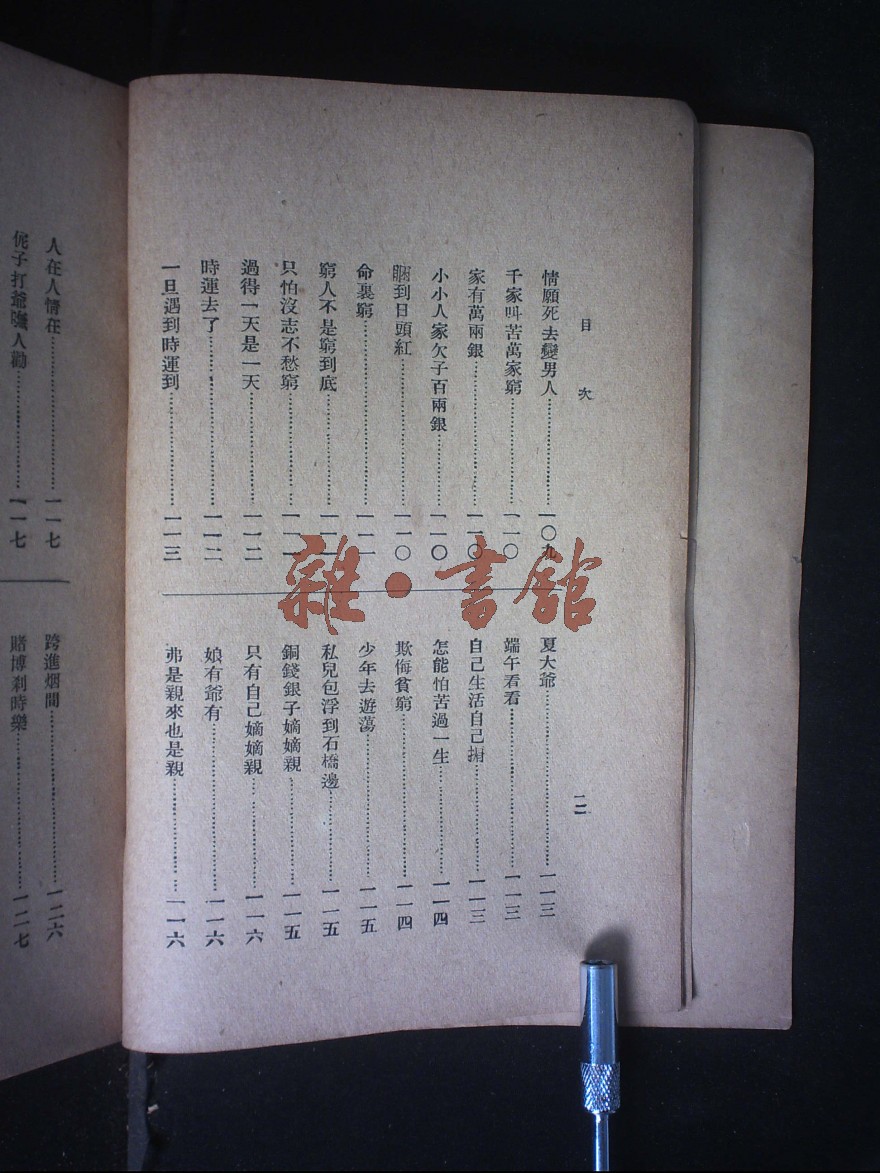 目次
一二
情願死去變男人……一〇九
千家叫苦萬家窮……一一〇
家有萬兩銀……一一〇
小小人家欠子百兩銀……一一〇
睏到日頭紅……一一〇
命裏窮……一一一
窮人不是窮到底……一一一
只怕沒志不愁窮……一一一
過得一天是一天……一一二
時運去了……一一二
一旦遇到時運到……一一三
夏大爺……一一三
端午看看……一一三
自己生活自己掮……一一三
怎能怕苦過一生……一一四
欺侮貧窮……一一四
少年去遊蕩……一一五
私兒包浮到石橋邊……一一五
銅錢銀子嫡嫡親……一一五
只有自己嫡嫡親……一一六
娘有爺有……一一六
弗是親來也是親……一一六
人在人情在……一一七
侂子打爺嘸人勸……一一七
跨進烟間……一二六
賭博剎時樂……一二七
雜·書館